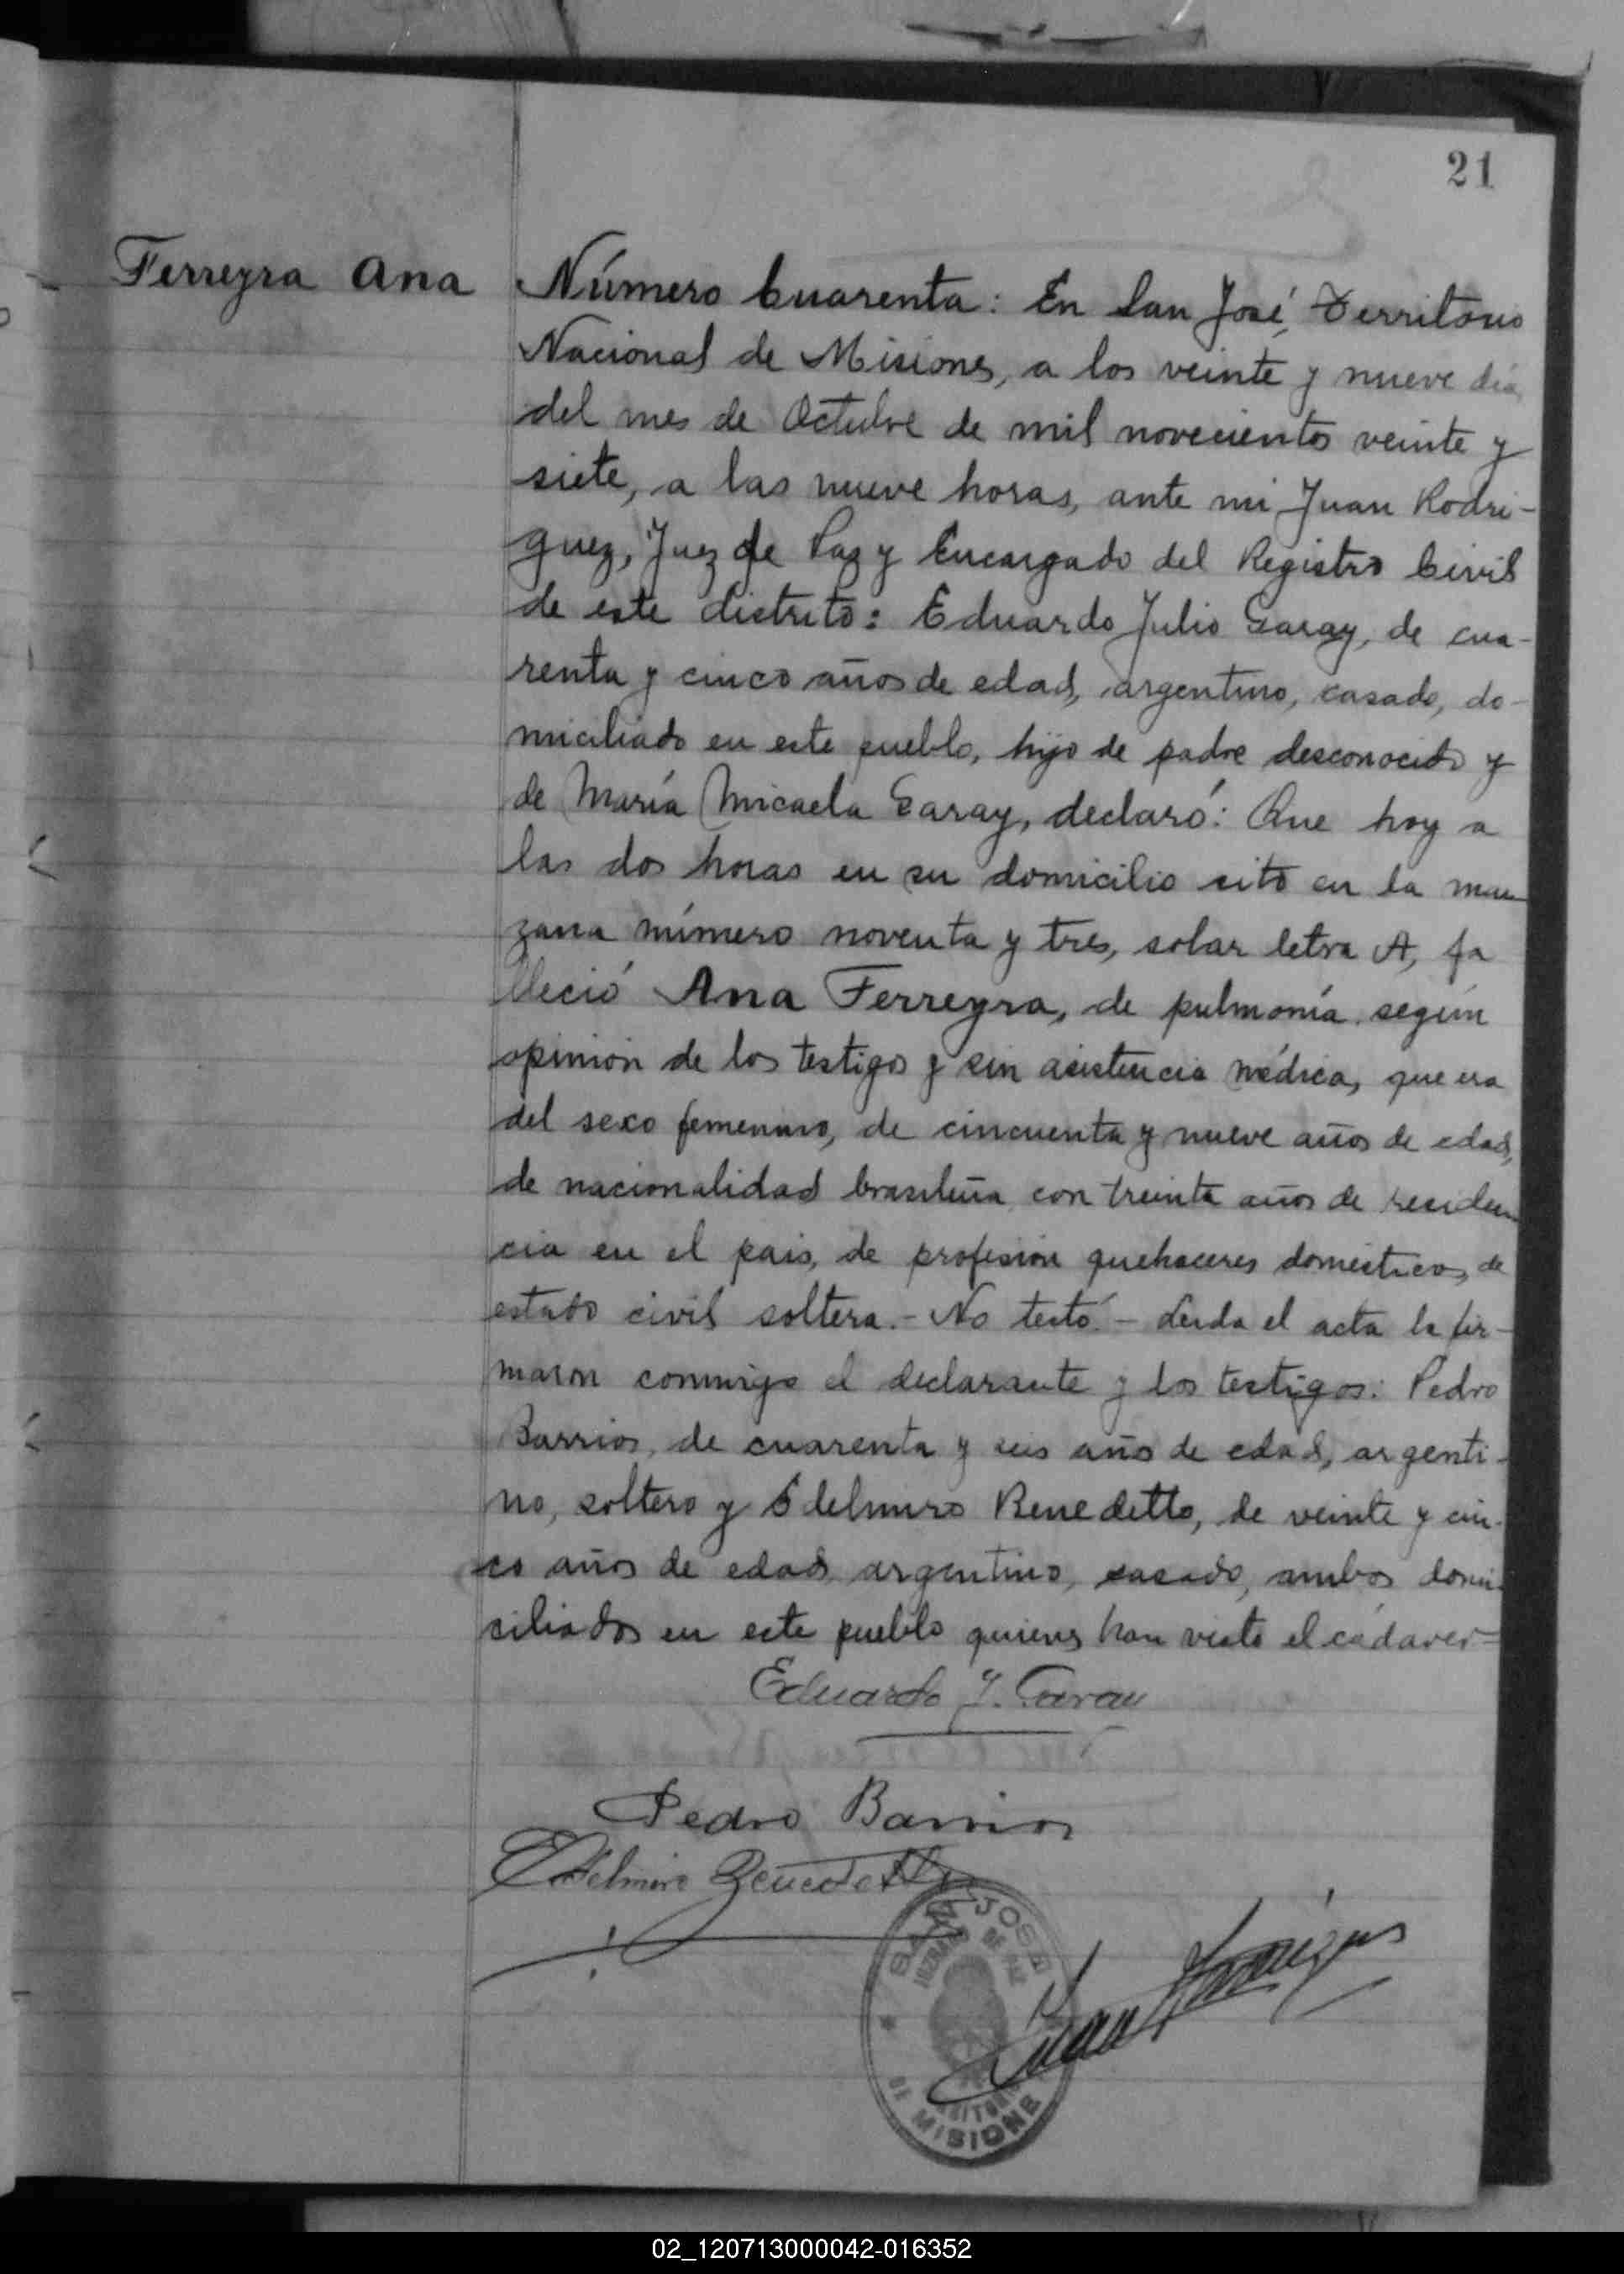 21
Ferreyra Ana
Número Cuarenta: En San José, Territorio
Nacional de Misiones, a los veinte y nueve dia
del mes de Octubre de mil novecientos veinte y
siete, a las nueve horas, ante mi Juan Rodri-
guez, Juez de Paz y Encargado del Registro Civil
de este distrito: Eduardo Julio Garay, de cua-
renta y cinco años de edad, argentino, casado, do-
miciliado en este pueblo, hijo de padre desconocido y
de María Micaela Garay, declaró: Que hoy a
las dos horas en su domicilio sito en la man
zana número noventa y tres, solar letra A, fa
lleció Ana Ferreyra, de pulmonía según
opinión de los testigos y sin asistencia médica, que era
del sexo femenino, de cincuenta y nueve años de edad,
de nacionalidad brasileña con treinta años de residen
cia en el pais, de profesión quehaceres domésticos, de
estado civil soltera.- No testó.- Leida el acta la fir-
maron conmigo el declarante y los testigos: Pedro
Barrios, de cuarenta y seis años de edad, argenti-
no, soltero y Edelmiro Benedetto, de veinte y cin-
co años de edad argentino, casado, ambos domi-
ciliados en este pueblo quienes han visto el cadaver=
Eduardo J. Garay
Pedro Barrios
Edelmiro Benedetto
SAN JOSE
JUZGADO DE PAZ
DE MISIONE
02_120713000042-016352